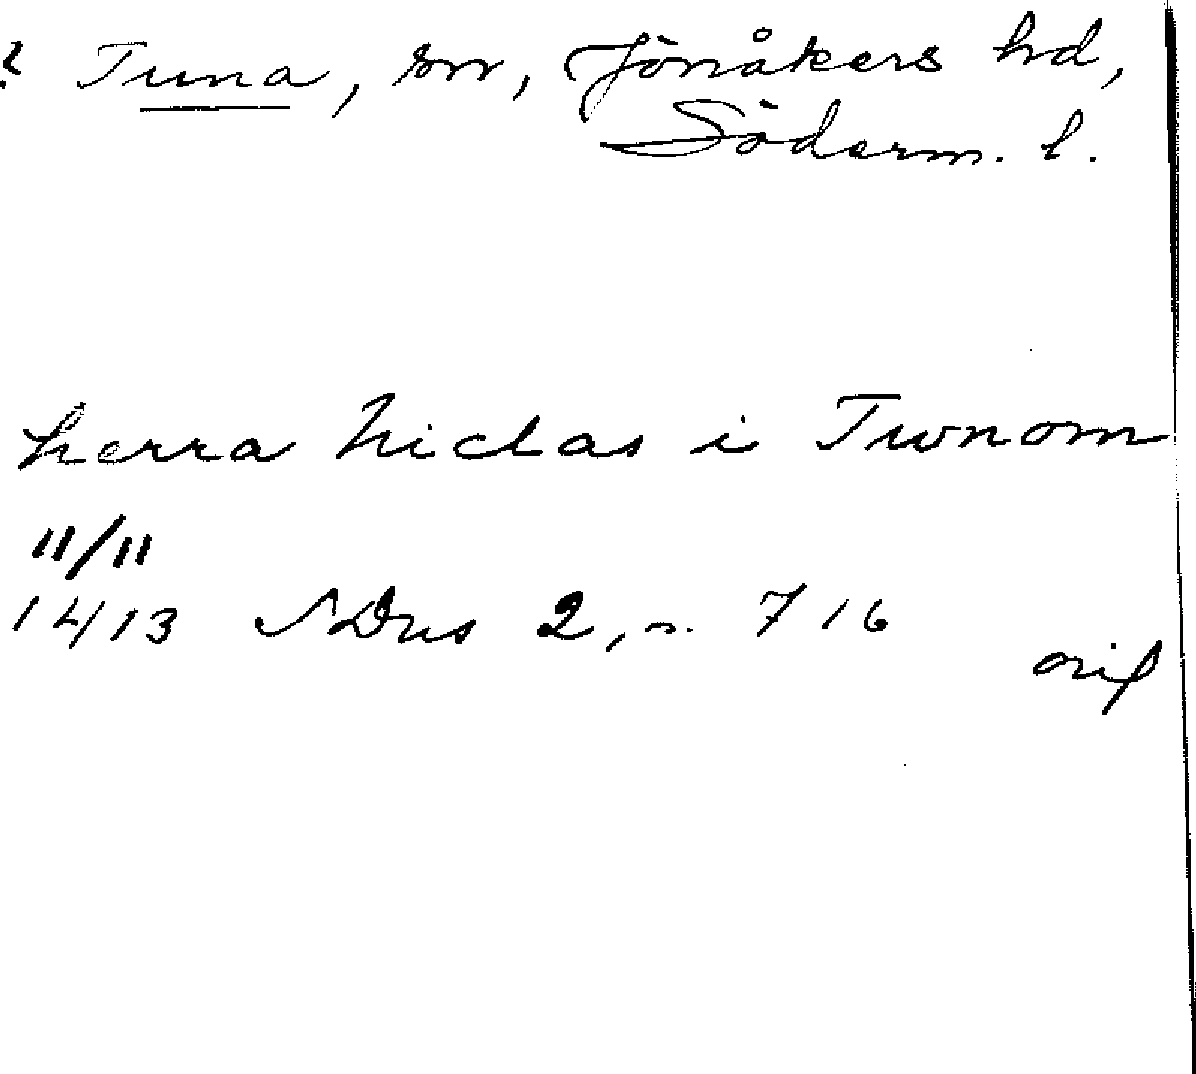 ? Tuna, sn, Jönåkers hd,
Söderm. l.
herra Niclas i Twnom
11/11
1413 SDns 2, n. 716
orig